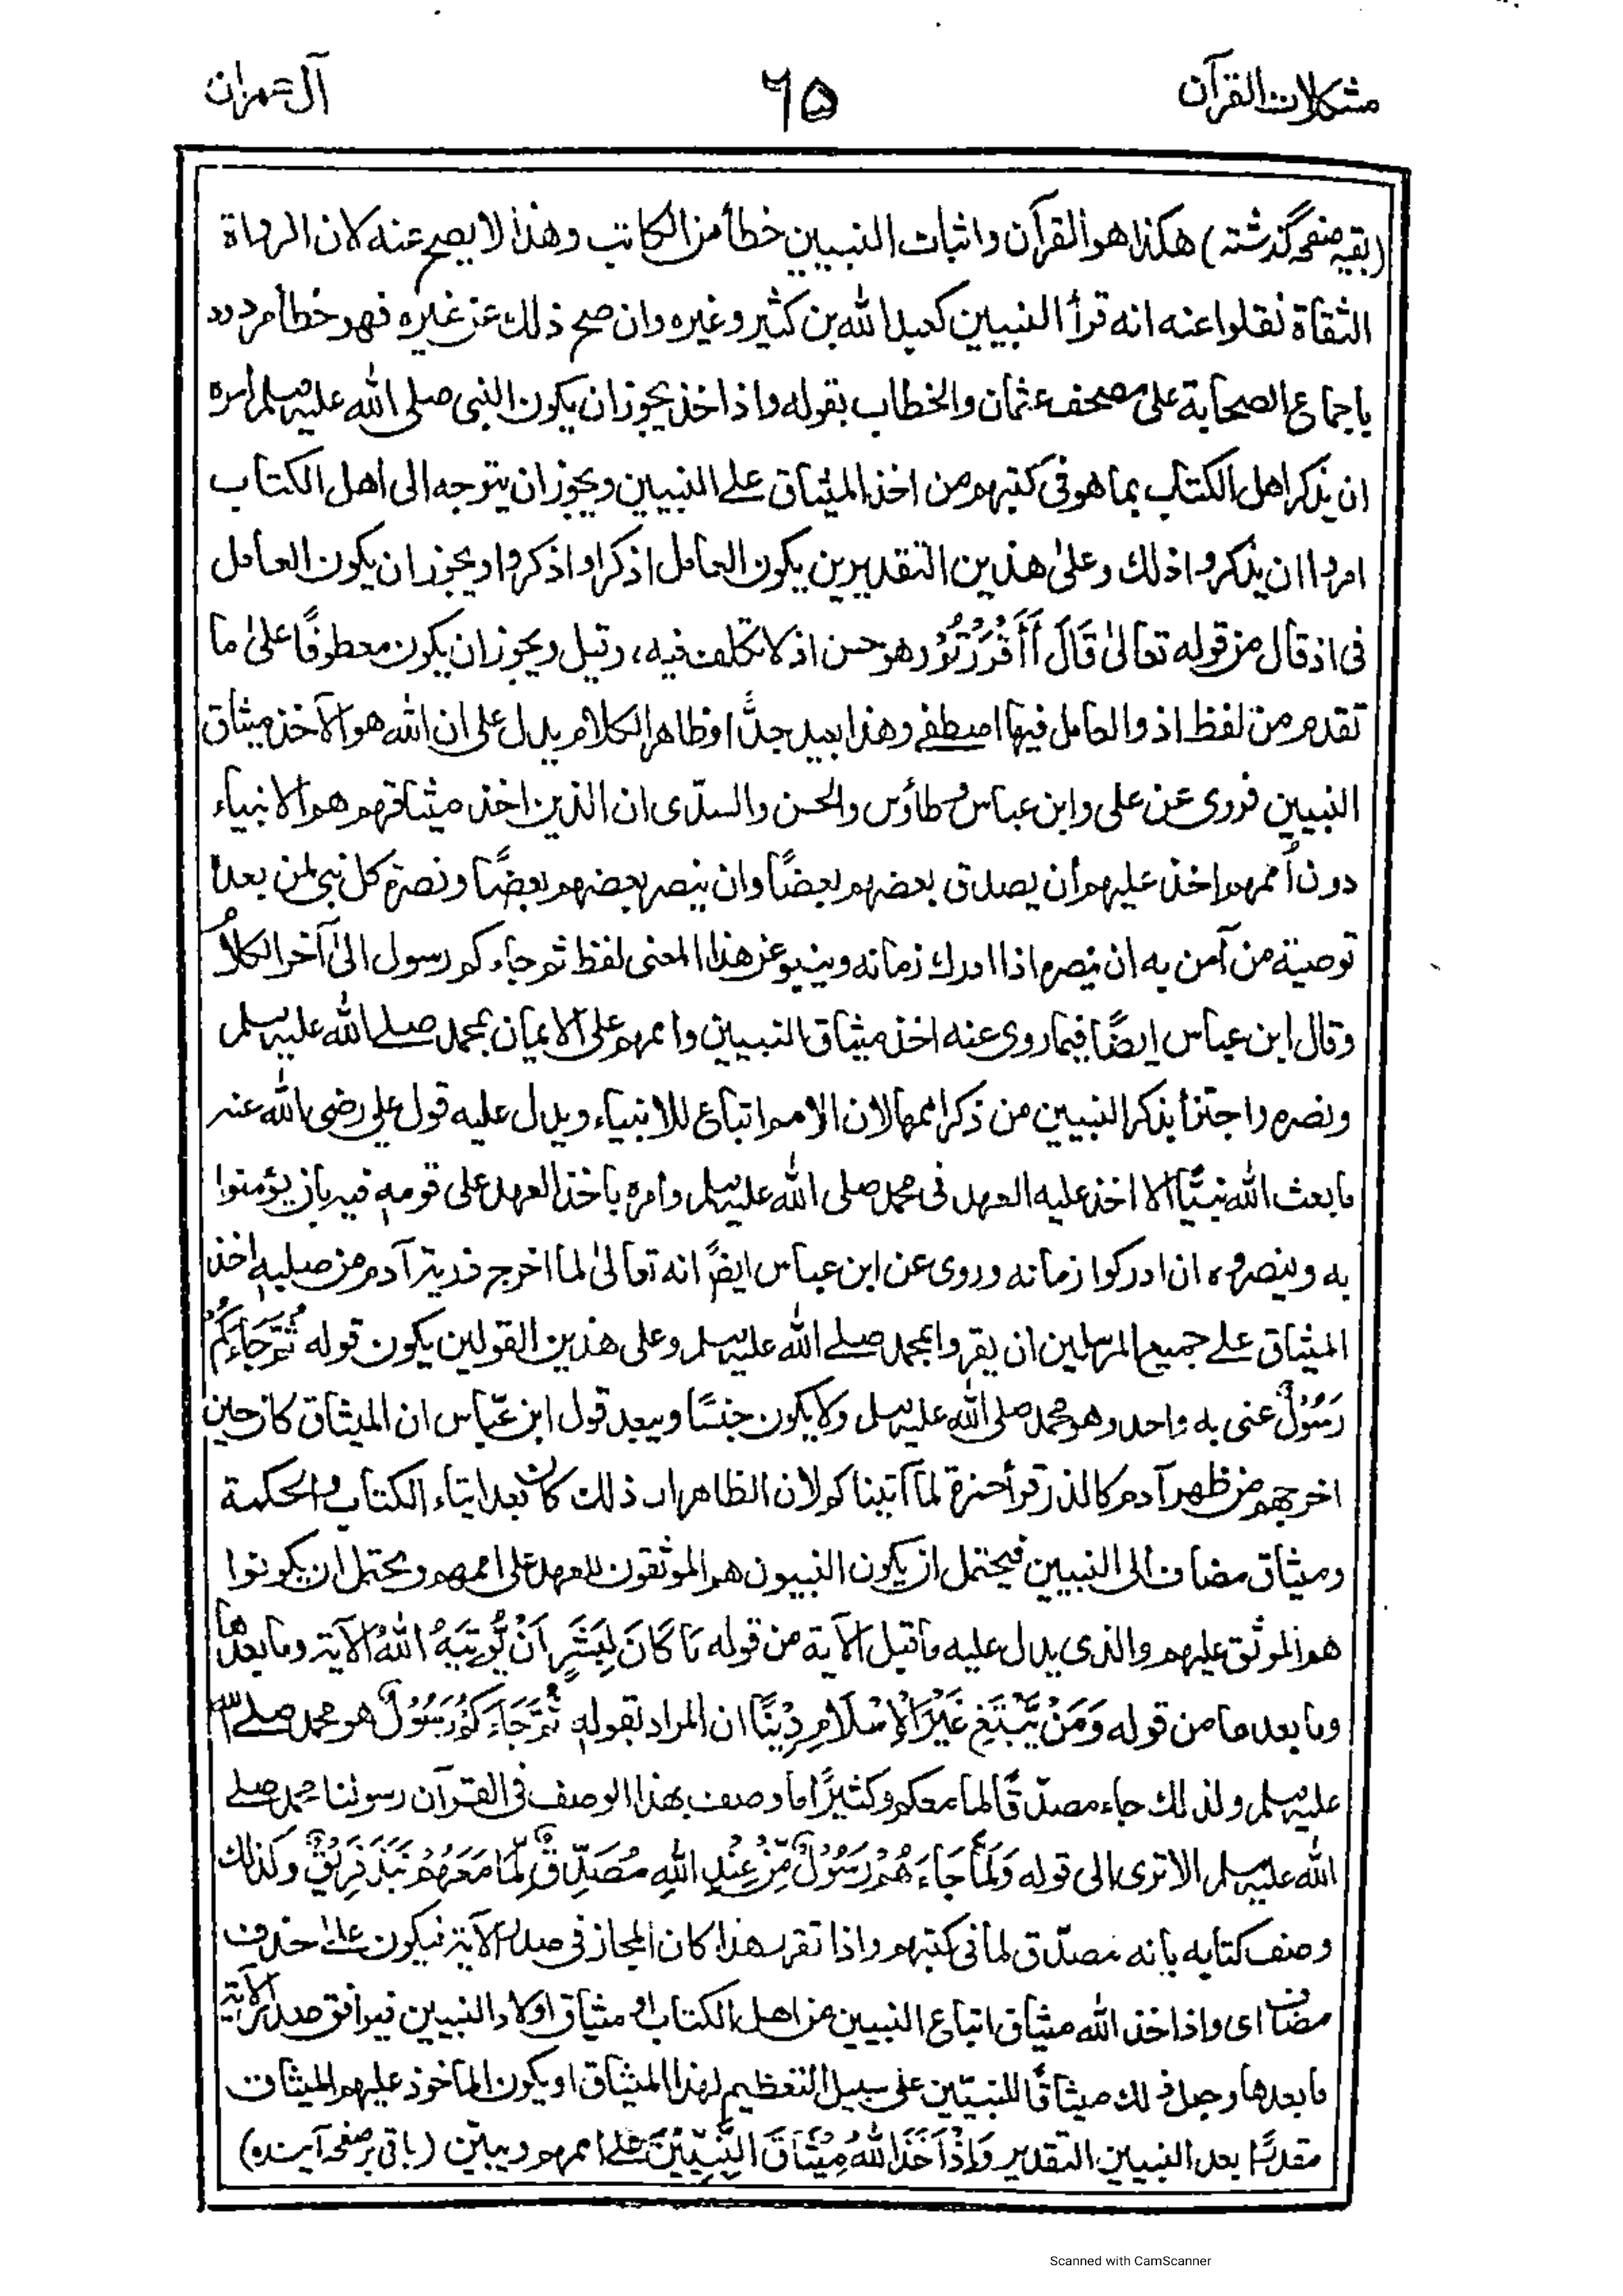 مشكلات القرآن
٦٥
آل عمران
(بقیہ صفحہ گذشتہ) هكذا هو القرآن واثبات النبيين خطأ من الكاتب وهذا لا يصح عنه لان الرواة
الثقاة نقلوا عنه انه قرأ النبيين كعبد الله بن كثير وغيره وان صح ذلك عن غيره فهو خطأ مردود
باجماع الصحابة على مصحف عثمان والخطاب بقوله واذ اخذ يجوز ان يكون النبى صلى الله عليه وسلم امره
ان يذكر اهل الكتاب بما هو فى كتبهم من اخذ الميثاق على النبيين ويجوز ان يتوجه الى اهل الكتاب
امروا ان يذكروا ذلك وعلىٰ هذين التقديرين يكون العامل اذكر او اذكروا ويجوز ان يكون العامل
فى اذ قال من قوله تعالىٰ قَالَ أَأَقْرَرْتُمْ وهو حسن اذ لا تكلف فيه، وقيل ويجوز ان يكون معطوفًا علىٰ ما
تقدم من لفظ اذ والعامل فيها اصطفى وهذا بعيد جدًّا وظاهر الكلام يدل على ان الله هو الآخذ ميثاق
النبيين فروى عن على وابن عباس وطاؤس والحسن والسدّى ان الذين اخذ ميثاقهم هم الانبياء
دون أممهم اخذ عليهم أن يصدق بعضهم بعضًا وان ينصر بعضهم بعضًا ونصرة كل نبى لمن بعده
توصية من آمن به ان ينصره اذا ادرك زمانه وينبو عن هذا المعنى لفظ ثم جاءكم رسول الىٰ آخر الكلام
وقال ابن عباس ايضًا فيما روى عنه اخذ ميثاق النبيين واممهم على الايمان بمحمد صلى الله عليه وسلم
ونصره واجتزأ بذكر النبيين من ذكر اممها لان الامم اتباع للانبياء ويدل عليه قول على رضى الله عنه
ما بعث الله نبيًّا الا اخذ عليه العهد فى محمد صلى الله عليه وسلم وامره باخذ العهد على قومه فيه بان يؤمنوا
به وينصروه ان ادركوا زمانه وروى عن ابن عباس ايضًا انه تعالىٰ لما اخرج ذرية آدم من صلبه اخذ
الميثاق على جميع المرسلين ان يقروا بمحمد صلى الله عليه وسلم وعلى هذين القولين يكون قوله ثُمَّ جَاءَكُمْ
رَسُوْلٌ عنى به واحد وهو محمد صلى الله عليه وسلم ولا يكون جنسًا ويبعد قول ابن عبّاس ان الميثاق كان حين
اخرجهم من ظهر آدم كالذر قرأ حمزة لما آتينا كم لان الظاهر ان ذلك كان بعد ايتاء الكتاب والحكمة
وميثاق مضاف الى النبيين فيحتمل ان يكون النبيون هم الموثقون للعهد على اممهم ويحتمل ان يكونوا
هم الموثق عليهم والذى يدل عليه ما قبل الآية من قوله مَا كَانَ لِبَشَرٍ اَنْ يُّؤْتِيَهُ اللّٰهُ الآية وما بعدها
وما بعدها من قوله وَمَنْ يَّبْتَغِ غَيْرَ الْاِسْلَامِ دِيْنًا ان المراد بقوله ثُمَّ جَاءَكُمْ رَسُوْلٌ هو محمد صلى الله
عليه وسلم ولذلك جاء مصدّقًا لما معكم وكثيرًا ما وصف بهذا الوصف فى القرآن رسولنا محمد صلى
الله عليه وسلم الا ترى الى قوله وَلَمَّا جَاءَهُمْ رَسُوْلٌ مِّنْ عِنْدِ اللّٰهِ مُصَدِّقٌ لِّمَا مَعَهُمْ نَبَذَ فَرِيْقٌ وكذلك
وصف كتابه بانه مصدّق لما فى كتبهم واذا تقرر هذا كان المجاز فى صدر الآية فيكون على حذف
مضاف اى واذ اخذ الله ميثاق اتباع النبيين من اهل الكتاب او ميثاق اولاد النبيين فيوافق صدر الآية
ما بعدها وجعل ذلك ميثاقًا للنبيّين على سبيل التعظيم لهذا الميثاق او يكون الماخوذ عليهم الميثاق
مقدرًا بعد النبيين التقدير وَاِذْ اَخَذَ اللّٰهُ مِيْثَاقَ النَّبِيِّيْنَ على اممهم ويبين (باقی بر صفحہ آیندہ)
Scanned with CamScanner